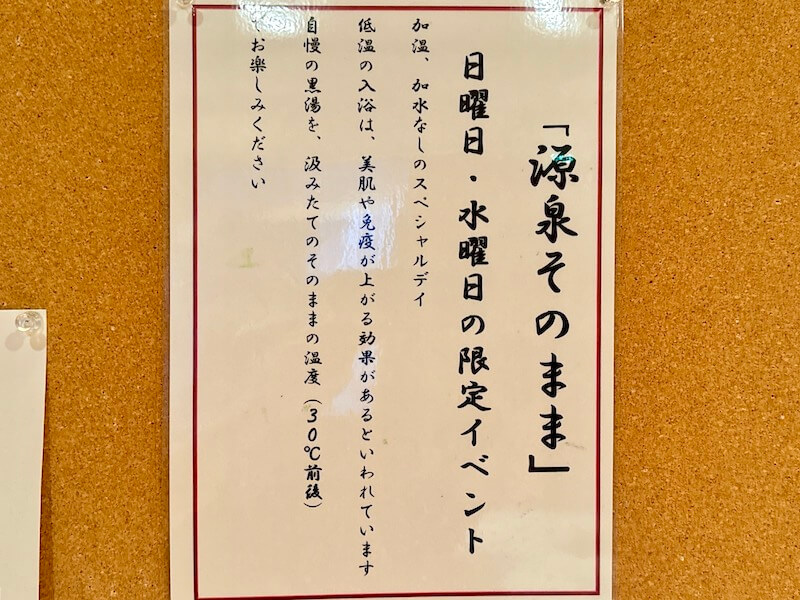 「源泉そのまま」
日曜日・水曜日の限定イベント
加温、加水なしのスペシャルデイ
低温の入浴は、美肌や免疫が上がる効果があるといわれています
自慢の黒湯を、汲みたてのそのままの温度（３０℃前後）
でお楽しみください